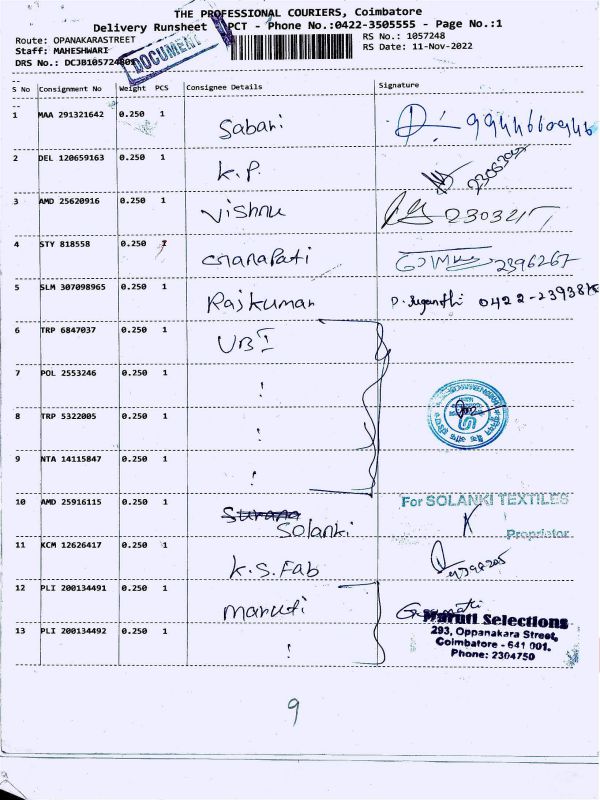 THE PROFESSIONAL COURIERS, Coimbatore
Delivery Runsheet PCT - Phone No.:0422-3505555 - Page No.:1
Route: OPANAKARASTREET
RS No.: 1057248
Staff: MAHESHWARI
RS Date: 11-Nov-2022
DRS No.: DCJB1057248
DOCUMENT
S No Consignment No Weight PCS Consignee Details Signature
1 MAA 291321642 0.250 1 Sabari
2 DEL 120659163 0.250 1 K.P.
3 AMD 25620916 0.250 1 Vishnu
4 STY 818558 0.250 1 Ganapati 2396267
5 SLM 307098965 0.250 1 Rajkumar
6 TRP 6847037 0.250 1 UBI
7 POL 2553246 0.250 1 !
8 TRP 5322005 0.250 1 !
9 NTA 14115847 0.250 1 !
10 AMD 25916115 0.250 1 Surana Solanki
For SOLANKI TEXTILES
Proprietor
11 KCM 12626417 0.250 1 K.S.Fab
12 PLI 200134491 0.250 1 Maruti
Maruti Selections
293, Oppanakara Street,
Coimbatore - 641 001.
Phone: 2304750
13 PLI 200134492 0.250 1 !
9